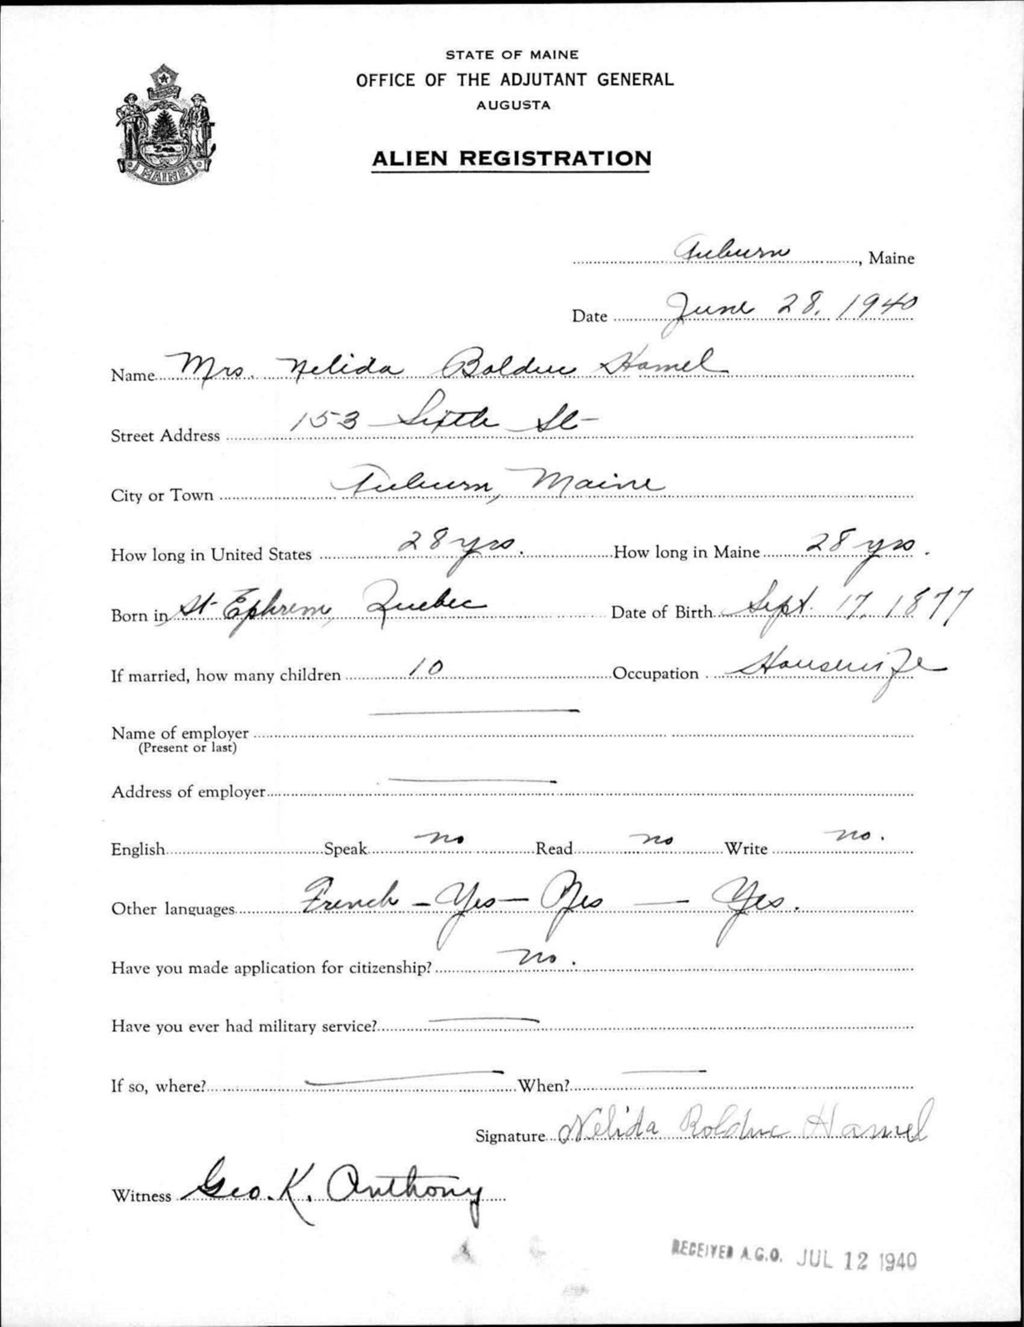 STATE OF MAINE
OFFICE OF THE ADJUTANT GENERAL
AUGUSTA
ALIEN REGISTRATION
MAINE
Auburn, Maine
Date June 28, 1940
Name Mrs. Nelida Bolduc Hamel
Street Address 153 Sixth St
City or Town Auburn, Maine
How long in United States 28 yrs. How long in Maine 28 yrs.
Born in St Ephrem, Quebec Date of Birth Sept. 17, 1877
If married, how many children 10 Occupation Housewife
Name of employer
(Present or last)
Address of employer
English Speak no Read no Write no.
Other languages French - Yes - Yes - Yes.
Have you made application for citizenship? no.
Have you ever had military service?
If so, where? When?
Signature Nelida Bolduc Hamel
Witness Geo. K. Anthony
RECEIVED A.G.O. JUL 12 1940